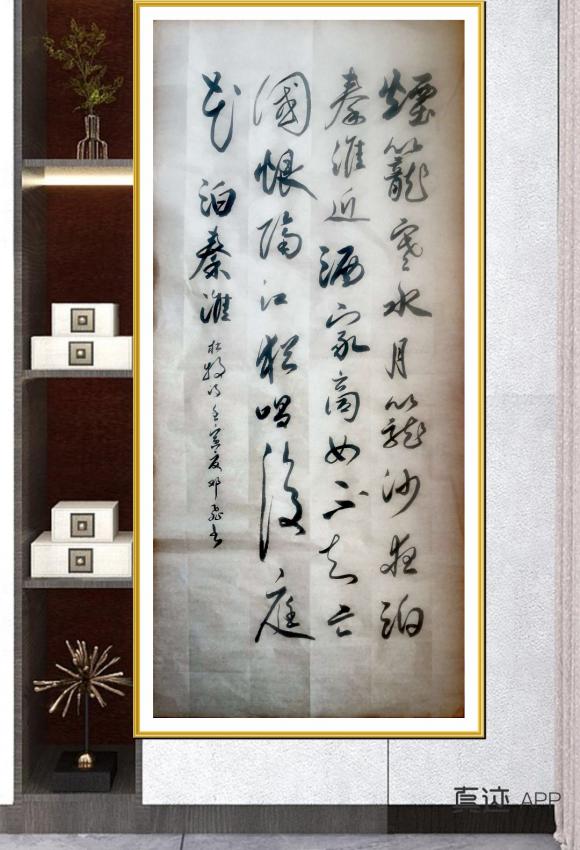 煙籠寒水月籠沙夜泊
秦淮近酒家商女不知亡
國恨隔江猶唱後庭
花 泊秦淮 杜牧詩壬寅夏邓 书
真迹 APP